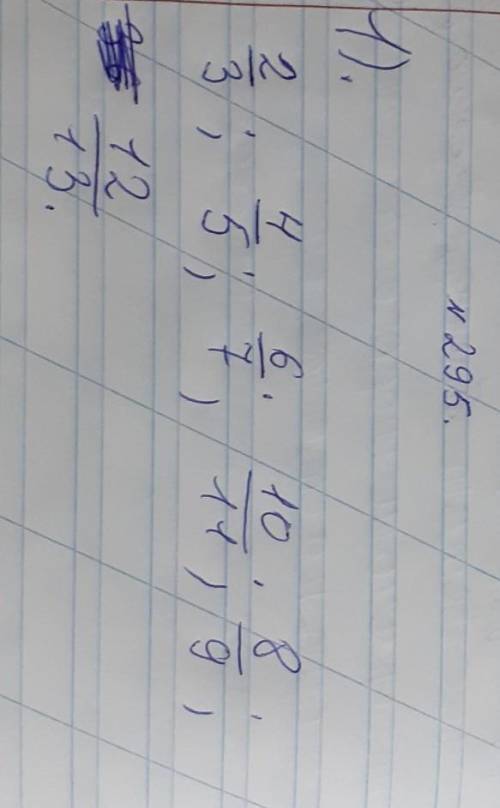 № 295.
1).
2/3; 4/5; 6/7; 10/11; 8/9;
12/13.